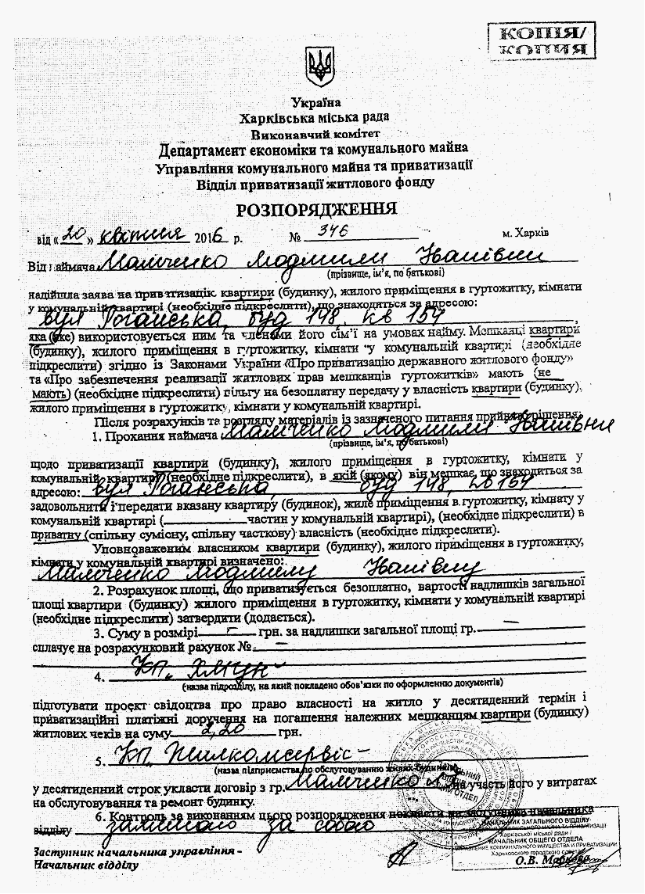 КОПІЯ/
КОПИЯ
Україна
Харківська міська рада
Виконавчий комітет
Департамент економіки та комунального майна
Управління комунального майна та приватизації
Відділ приватизації житлового фонду
РОЗПОРЯДЖЕННЯ
від «20» квітня 2016 р. № 346 м. Харків
Від наймача
(прізвище, ім'я, по батькові)
надійшла заява на приватизацію квартири (будинку), жилого приміщення в гуртожитку, кімнати
у комунальній квартирі (необхідне підкреслити), що знаходиться за адресою:
вул Роганська, буд 148, кв 154
яка (яке) використовується ним та членами його сім'ї на умовах найму. Мешканці квартири
(будинку), жилого приміщення в гуртожитку, кімнати у комунальній квартирі (необхідне
підкреслити) згідно із Законами України «Про приватизацію державного житлового фонду»
та «Про забезпечення реалізації житлових прав мешканців гуртожитків» мають (не
мають) (необхідне підкреслити) пільгу на безоплатну передачу у власність квартири (будинку),
жилого приміщення в гуртожитку, кімнати у комунальній квартирі.
Після розрахунків та розгляду матеріалів із зазначеного питання прийнято рішення:
1. Прохання наймача
(прізвище, ім'я, по батькові)
щодо приватизації квартири (будинку), жилого приміщення в гуртожитку, кімнати у
комунальній квартирі (необхідне підкреслити), в якій (якому) він мешкає, що знаходиться за
адресою: вул Роганська, буд 148, кв 154
задовольнити і передати вказану квартиру (будинок), жиле приміщення в гуртожитку, кімнату у
комунальній квартирі (____частин у комунальній квартирі), (необхідне підкреслити) в
приватну (спільну сумісну, спільну часткову) власність (необхідне підкреслити).
Уповноваженим власником квартири (будинку), жилого приміщення в гуртожитку,
кімнати у комунальній квартирі визначено:
2. Розрахунок площі, що приватизується безоплатно, вартості надлишків загальної
площі квартири (будинку) жилого приміщення в гуртожитку, кімнати у комунальній квартирі
(необхідне підкреслити) затвердити (додається).
3. Суму в розмірі – грн. за надлишки загальної площі гр. –
сплачує на розрахунковий рахунок № –
4. КП
(назва підрозділу, на який покладено обов'язки по оформленню документів)
підготувати проект свідоцтва про право власності на житло у десятиденний термін і
приватизаційні платіжні доручення на погашення належних мешканцям квартири (будинку)
житлових чеків на суму 2,20 грн.
5. КП Жилкомсервіс –
(назва підприємства по обслуговуванню жилих будинків)
у десятиденний строк укласти договір з гр. на участь його у витратах
на обслуговування та ремонт будинку.
6. Контроль за виконанням цього розпорядження покласти на заступника начальника
відділу залишаю за собою
Заступник начальника управління -
Начальник відділу
НАЧАЛЬНИК ЗАГАЛЬНОГО ВІДДІЛУ
Харківської міської ради /
НАЧАЛЬНИК ОБЩЕГО ОТДЕЛА
О.В.